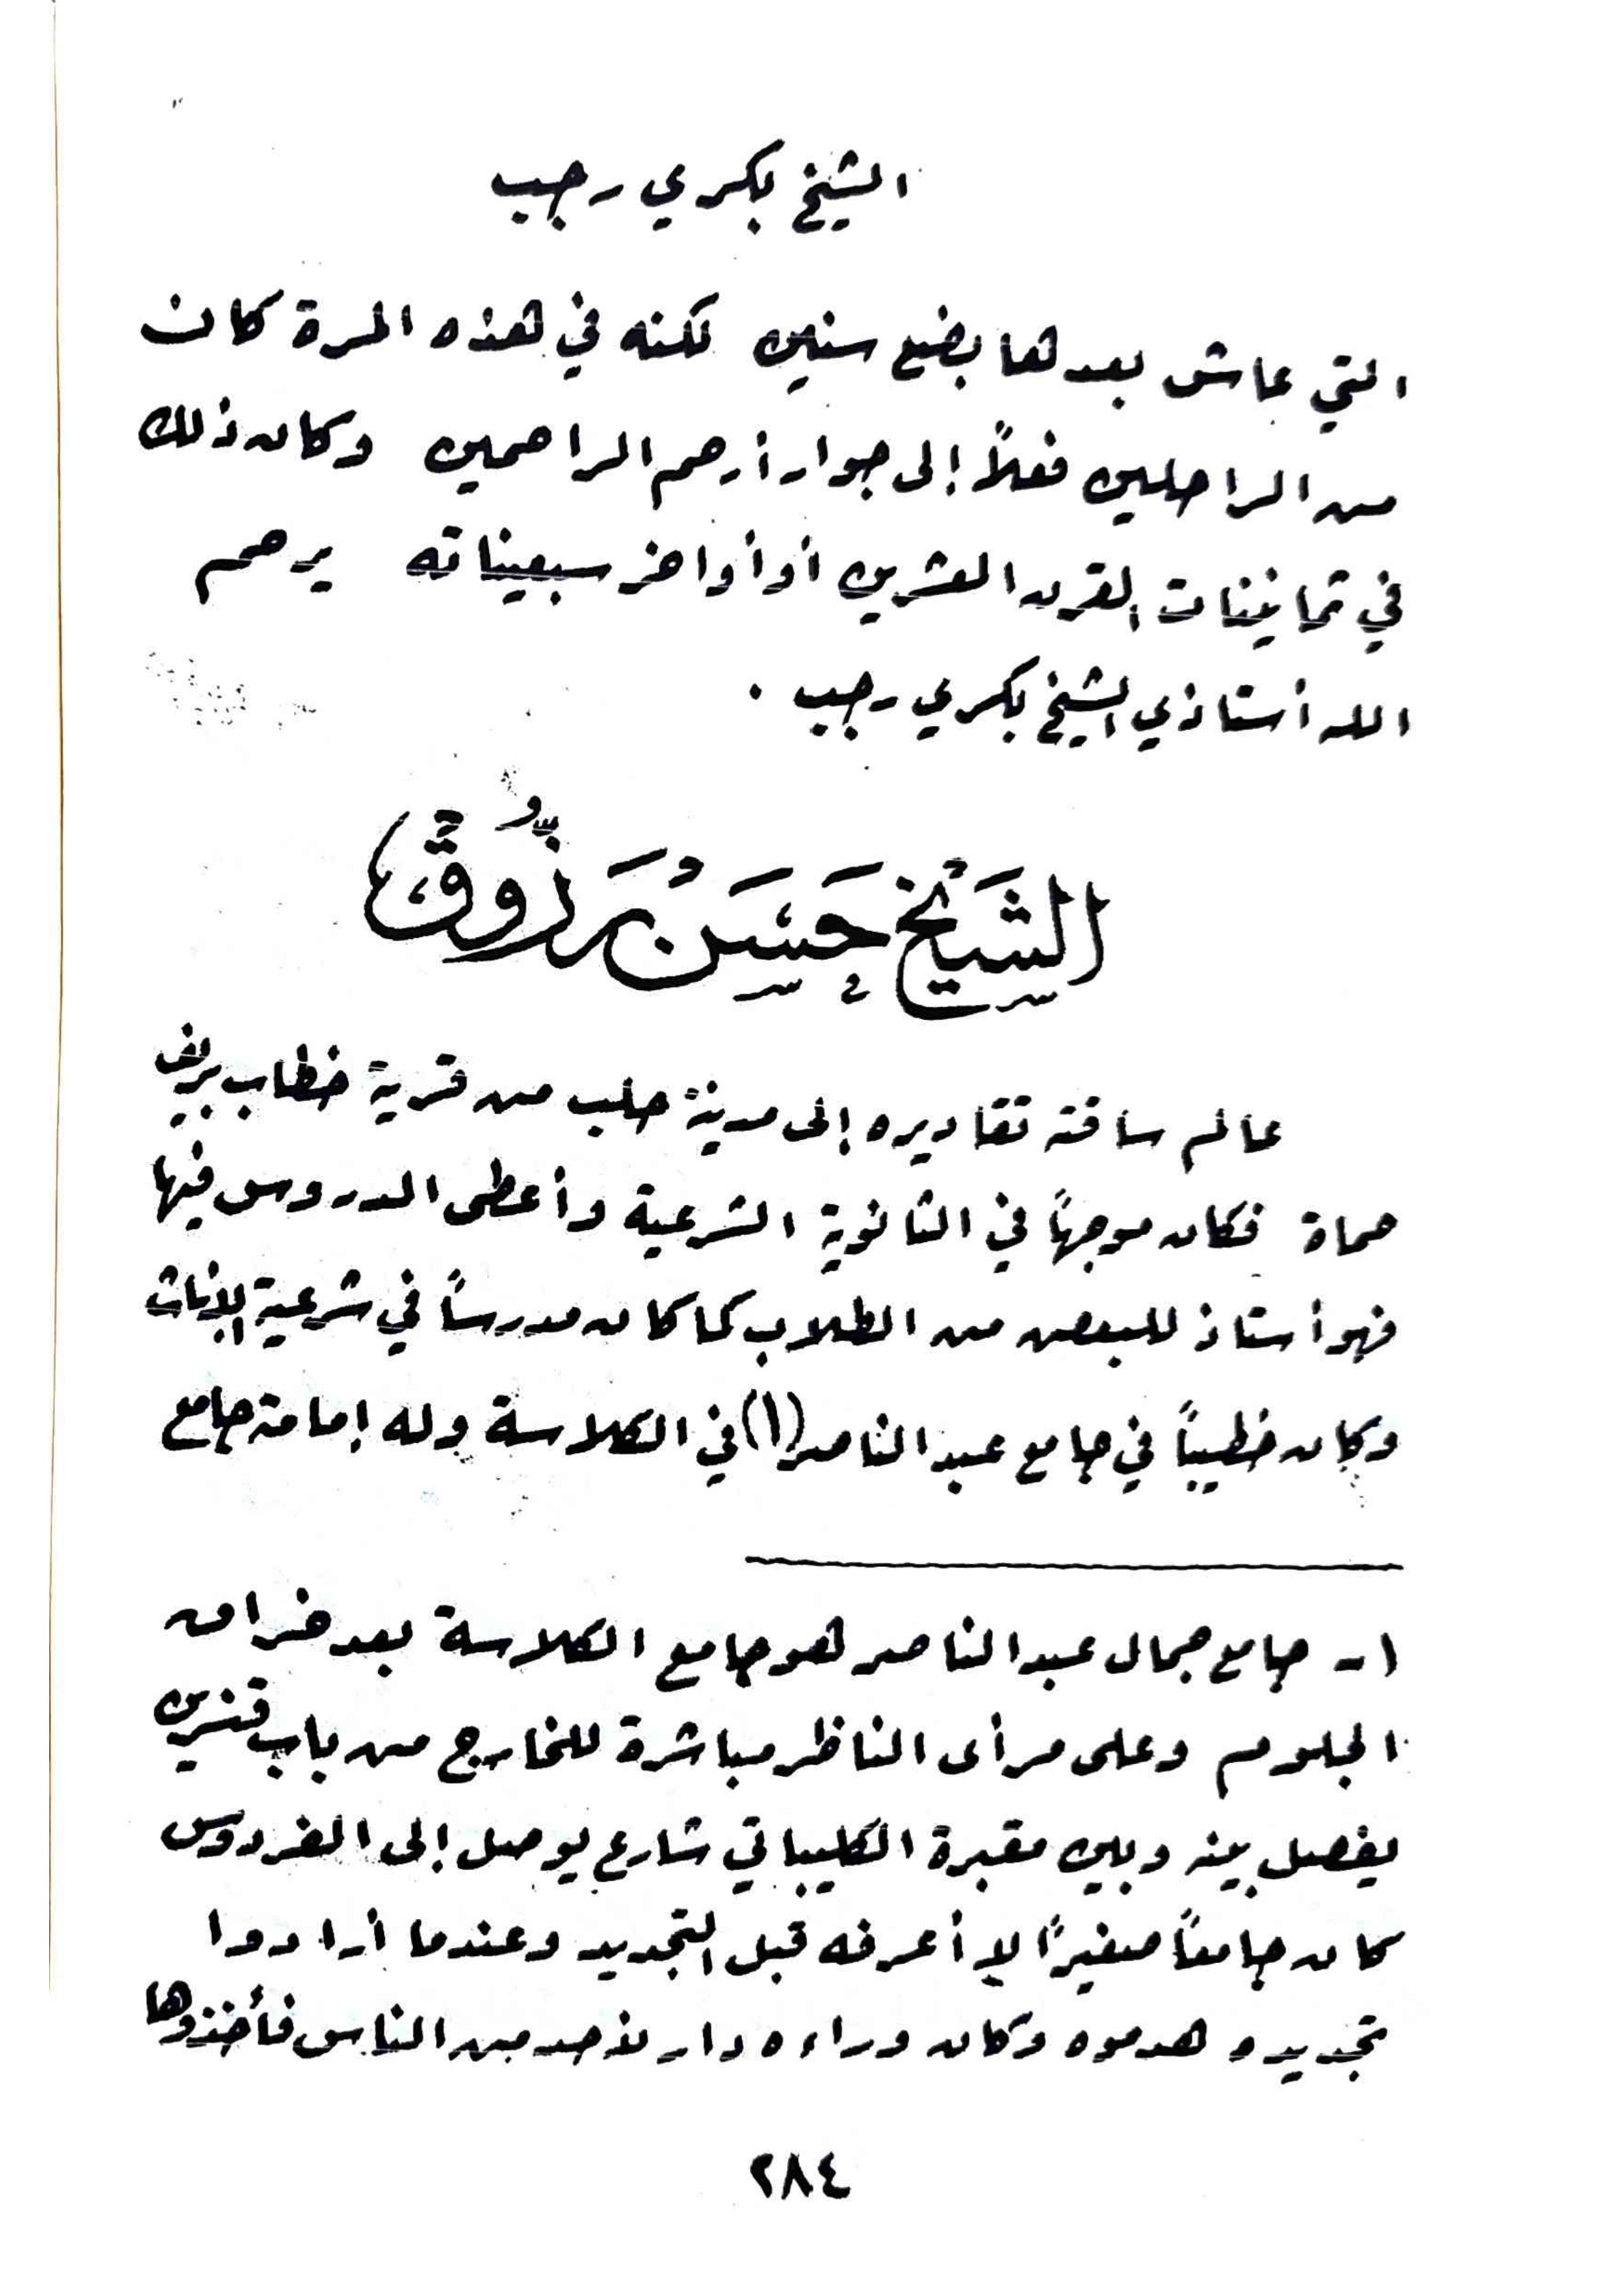 الشيخ بكري رجب
التي عاش بعدها بضع سنين لكنه في هذه المرة كان
من الراحلين فعلاً إلى جوار أرحم الراحمين وكان ذلك
في ثمانينات القرن العشرين أو أواخر سبعيناته يرحم
الله أستاذي الشيخ بكري رجب .
الشَّيْخ حَسَنْ مَرَزُّوقْ
عالم ساقته تقاديره إلى مدينة حلب من قرية خطاب بريف
حماة فكان موجهاً في الثانوية الشرعية وأعطى الدروس فيها
فهو أستاذ للبعض من الطلاب كما كان مدرساً في شرعية الإناث
وكان خطيباً في جامع عبد الناصر (١) في الكلاسة وله إمامة جامع
١- جامع جمال عبد الناصر هو جامع الكلاسة بعد خراق
الجلوم وعلى مرأى الناظر مباشرة للخارج من باب قنسرين
يفصل بينه وبين مقبرة الكليباتي شارع يوصل إلى الفردوس
كان جامعاً صغيراً لا أعرفه قبل التجديد وعندما أرادوا
تجديده هدموه وكان وراءه دار لأحد من الناس فأخذوها
٢٨٤